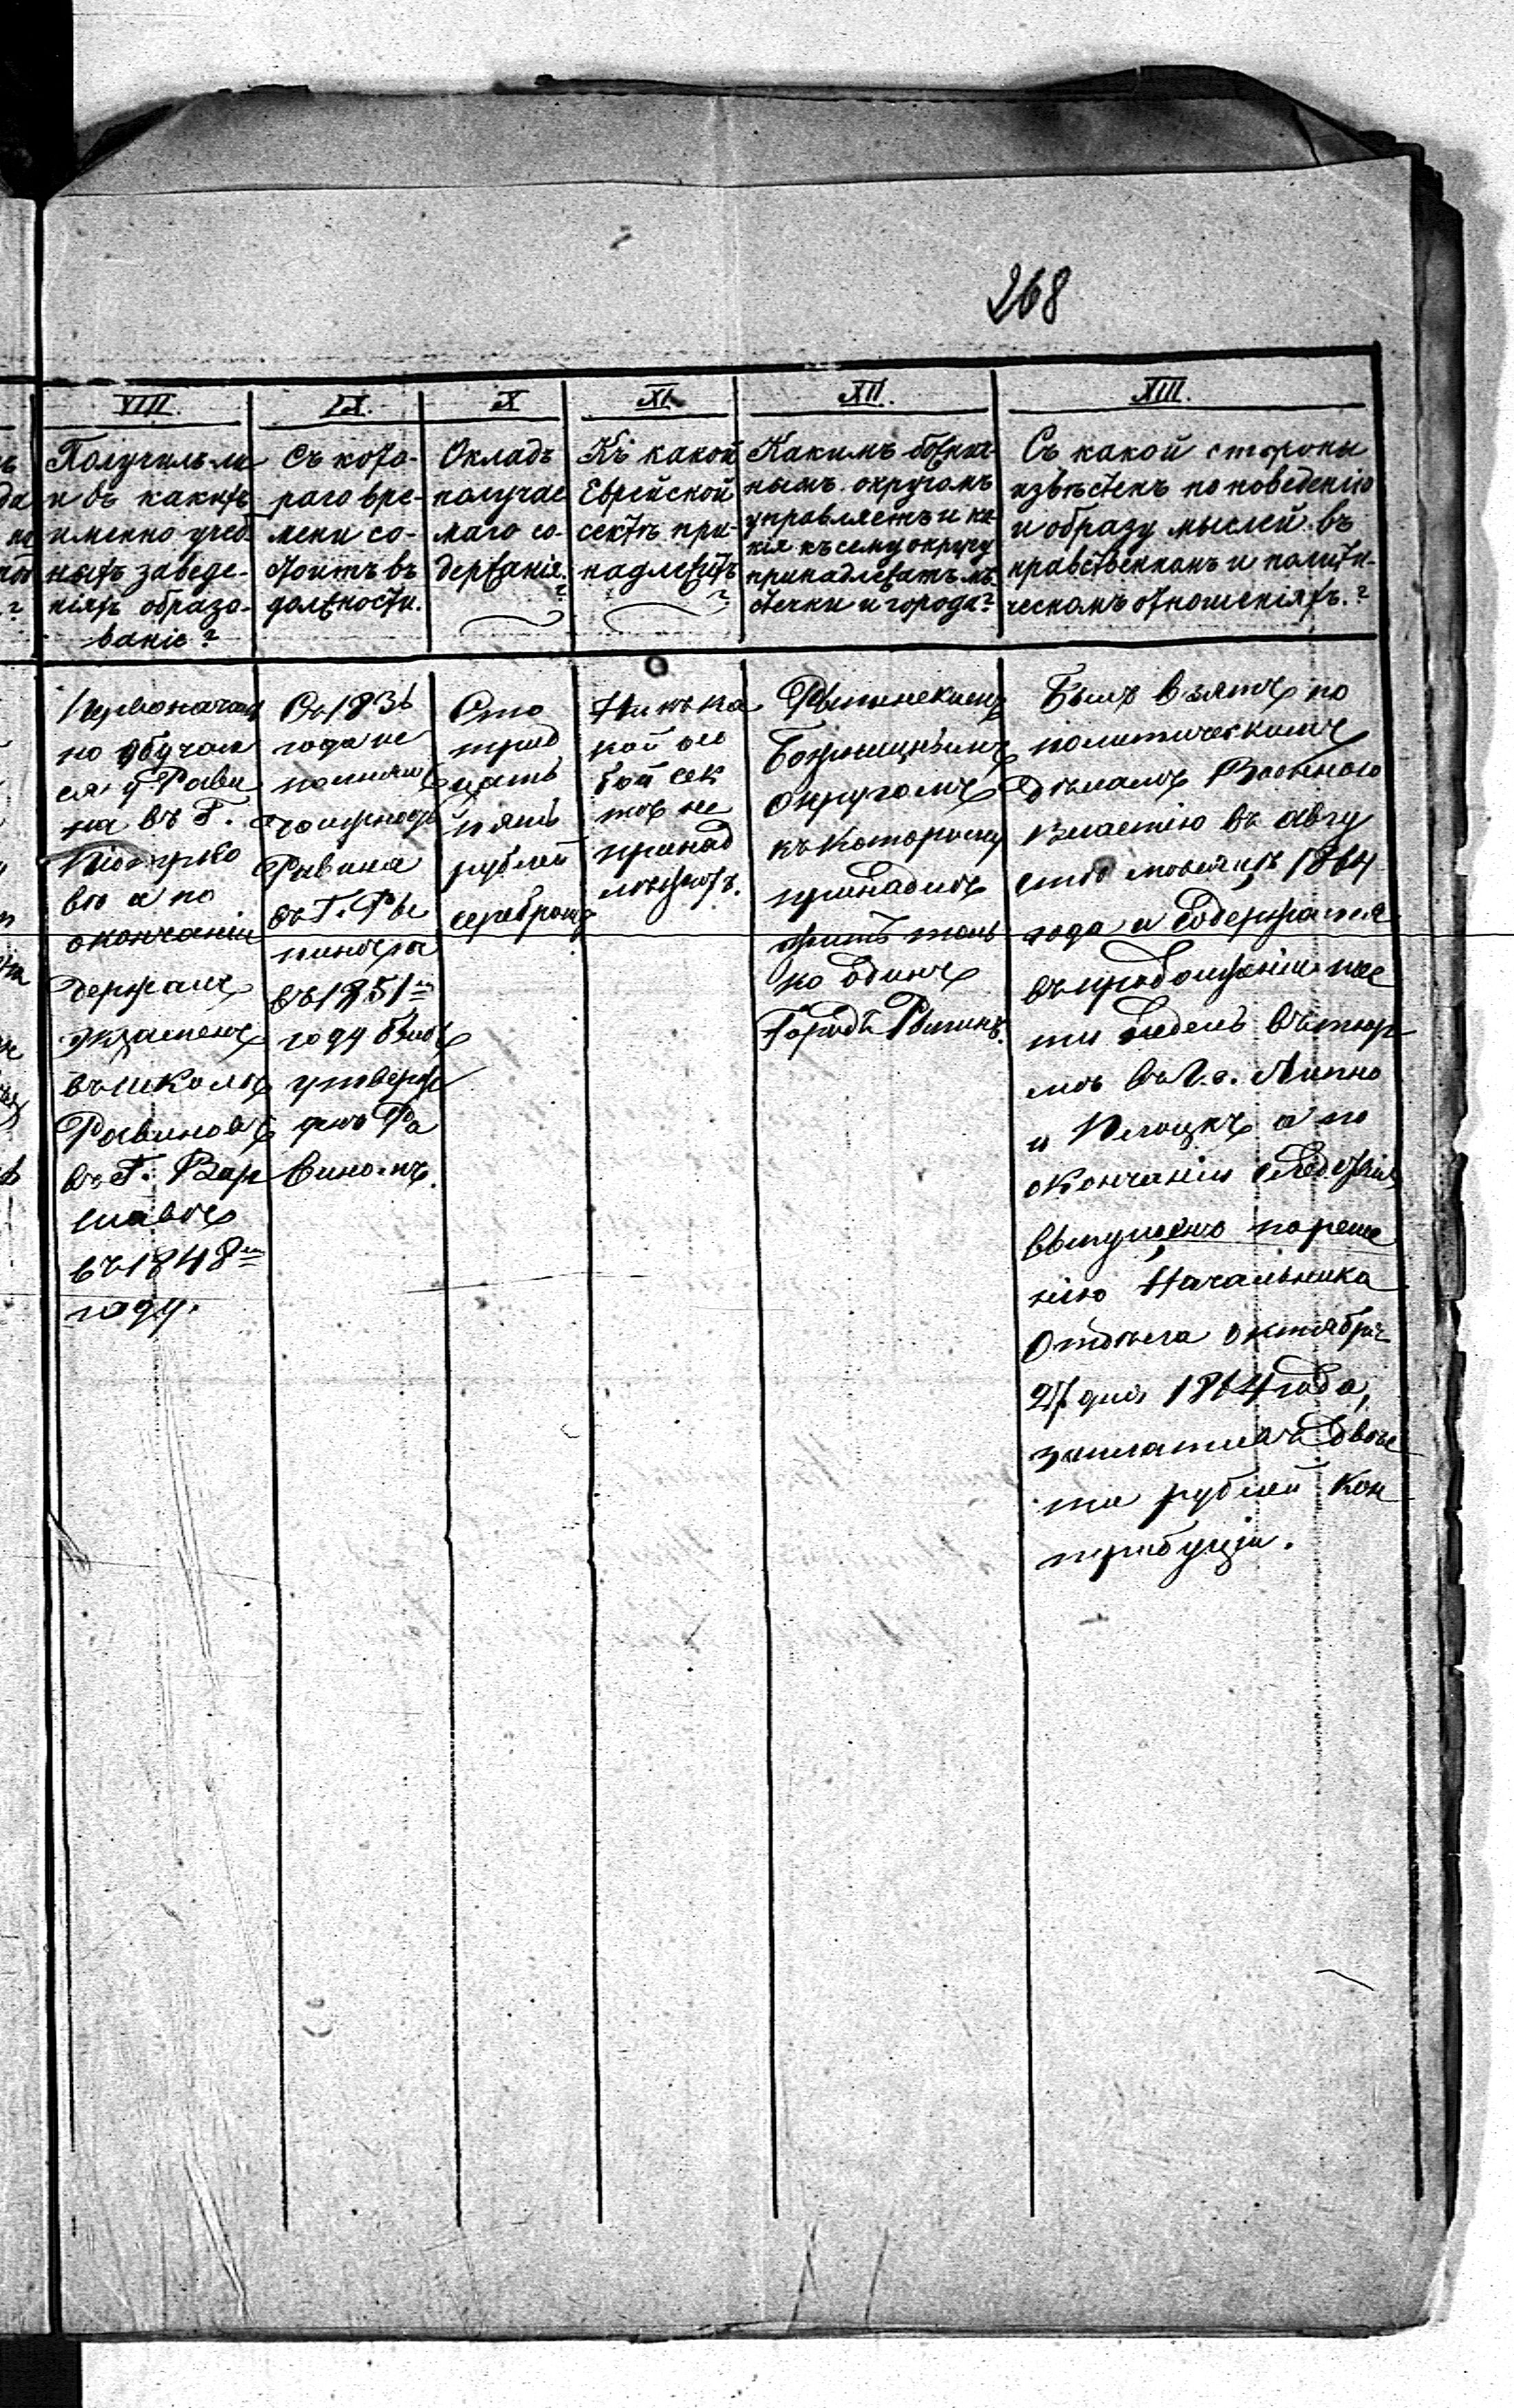 268
VIII.
Получилъ-ли
и въ какихъ
именно учеб
ныхъ заведе-
ніяхъ образо-
ваніе?
IX.
Съ кото-
раго вре-
мени со-
стоитъ въ
должности.
X
Окладъ
получае
маго со-
держанія.
?
XI.
Къ какой
Еврейской
сектѣ при-
надлежитъ
?
XII.
Какимъ божнич-
нымъ округомъ
управляетъ и ка-
кія къ сему округу
принадлежатъ мѣ-
стечки и города?
XIII.
Съ какой стороны
извѣстенъ по поведенію
и образу мыслей въ
нравственномъ и полити-
ческомъ отношеніяхъ.?
Первоначаль
но обучал
ся у Рави
на въ Г.
во а по
окончаніи
держалъ
экзаменъ
въ школѣ
Равиновъ
въ Г. Вар
шавѣ
въ 1848 м
году.
года ис
полняетъ
должность
Равина
въ Г. Ры
пинѣ а
въ 1851 м
году былъ
утверж
денъ Ра
виномъ.
Сто
трид
цать
пять
рублей
серебромъ
Ни къ ка
кой осо
бой сек
тѣ не
принад
лежитъ.
Рыпинскимъ
Божничнымъ
Округомъ
къ которому
принадле
житъ толь
ко Одинъ
Городъ Рыпинъ.
Былъ взятъ по
политическимъ
Дѣламъ Военною
властію въ авгу
стѣ мѣсяцѣ 1864
года и содержался
въ продолженіи шес
ти недель въ тюр
мѣ въ Г.г. Липно
и Плоцкъ а по
окончаніи следствія
выпущено по реше
нію Начальника
Отдѣла Октября
27 дня 1864 года,
заплативъ двѣс
ти рублей Кон
трибуціи.